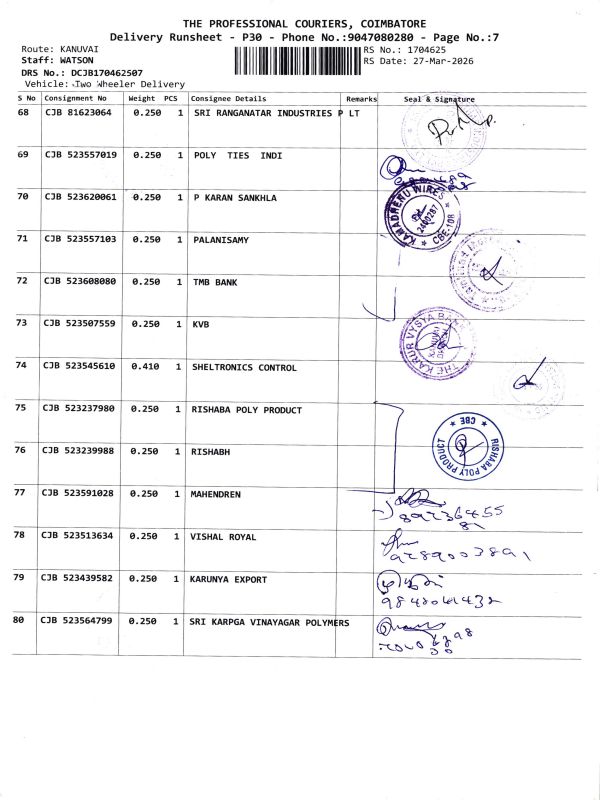 THE PROFESSIONAL COURIERS, COIMBATORE
Delivery Runsheet - P30 - Phone No.:9047080280 - Page No.:7
Route: KANUVAI
RS No.: 1704625
Staff: WATSON
RS Date: 27-Mar-2026
DRS No.: DCJB170462507
Vehicle: Two Wheeler Delivery
S No Consignment No Weight PCS Consignee Details Remarks Seal & Signature
68 CJB 81623064 0.250 1 SRI RANGANATAR INDUSTRIES P LT
69 CJB 523557019 0.250 1 POLY TIES INDI
70 CJB 523620061 0.250 1 P KARAN SANKHLA
KAMADHENU WIRES
CBE-108
71 CJB 523557103 0.250 1 PALANISAMY
72 CJB 523608080 0.250 1 TMB BANK
73 CJB 523507559 0.250 1 KVB
THE KARUR VYSYA BANK
KANUVAI
74 CJB 523545610 0.410 1 SHELTRONICS CONTROL
75 CJB 523237980 0.250 1 RISHABA POLY PRODUCT
RISHABA POLY PRODUCT
CBE
76 CJB 523239988 0.250 1 RISHABH
77 CJB 523591028 0.250 1 MAHENDREN
78 CJB 523513634 0.250 1 VISHAL ROYAL
9789003891
79 CJB 523439582 0.250 1 KARUNYA EXPORT
80 CJB 523564799 0.250 1 SRI KARPGA VINAYAGAR POLYMERS